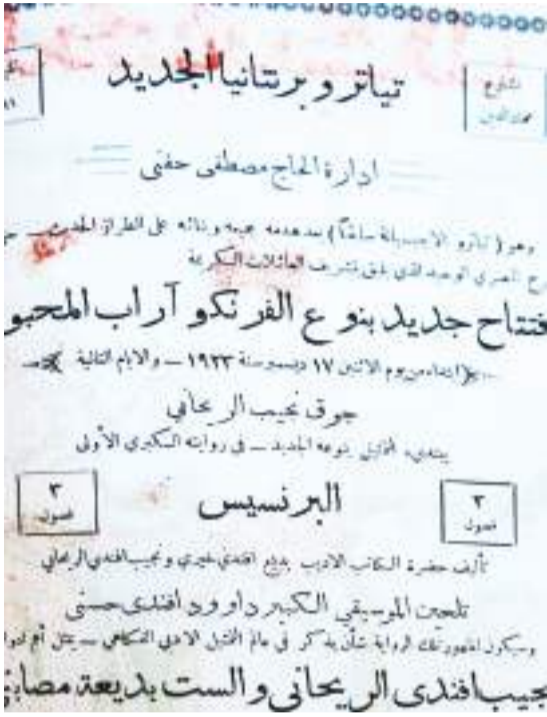 تياترو برنتانيا الجديد
بشارع
عماد الدين
ادارة الحاج مصطفى حفنى
وهو (تياترو الاجبسيانة سابقاً) بعد هدمه جميعه وبنائه على الطراز الحديث
المصري الوحيد الذي يليق بتشريف العائلات الكريمة
جديد بنوع الفرنكو آراب
ابتداء من يوم الاثنين ١٧ ديسمبر سنة ١٩٢٣ – والايام التالية
جوق نجيب الريحاني
التمثيل بنوعه الجديد – في روايته الكبرى الأولى
٣
فصول
البرنسيس
٣
فصول
تأليف حضرة الكاتب الاديب بديع افندي خيري ونجيب افندي الريحاني
تلحين الموسيقي الكبير داوود افندى حسنى
وسيكون لظهور تلك الرواية شأن يذكر في عالم التمثيل الادبي الفكاهي – يمثل أهم
افندى الريحانى والست بديعة